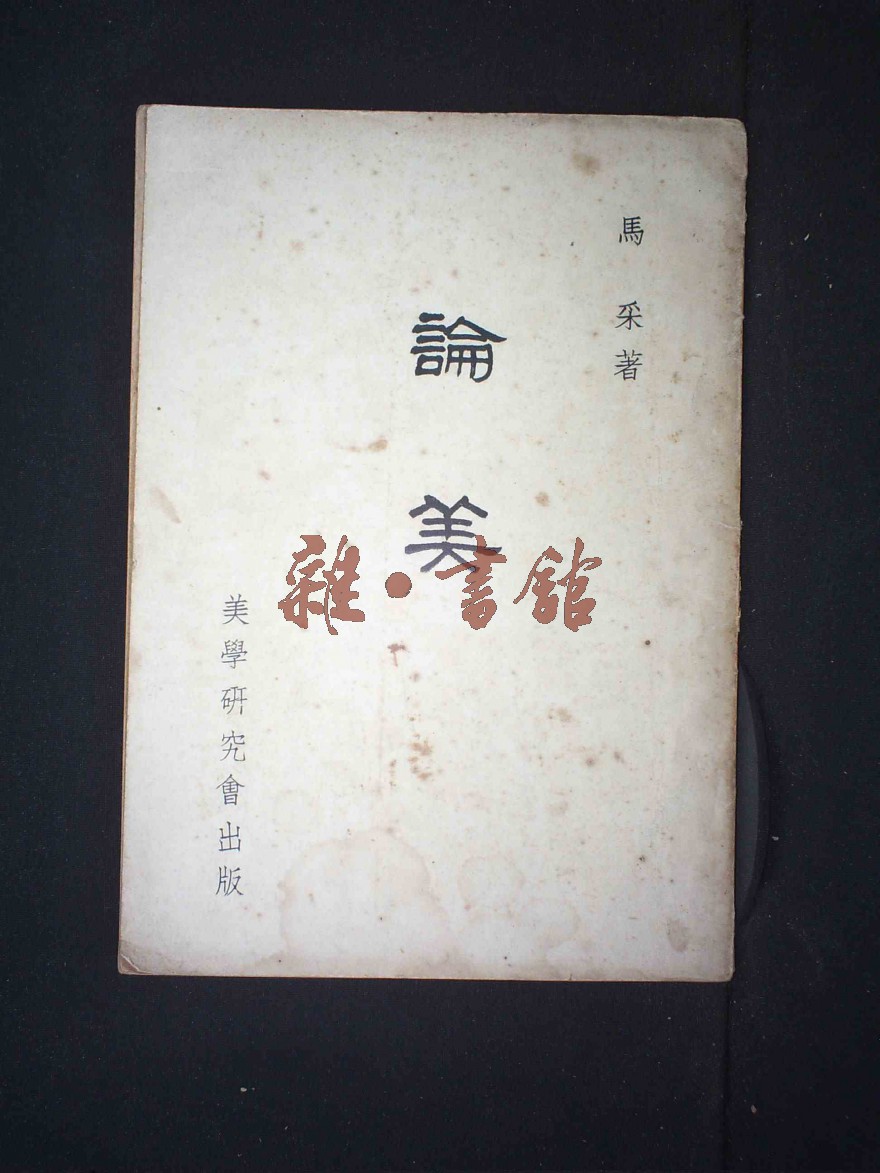 馬采著
論美
美學研究會出版
雜·書館